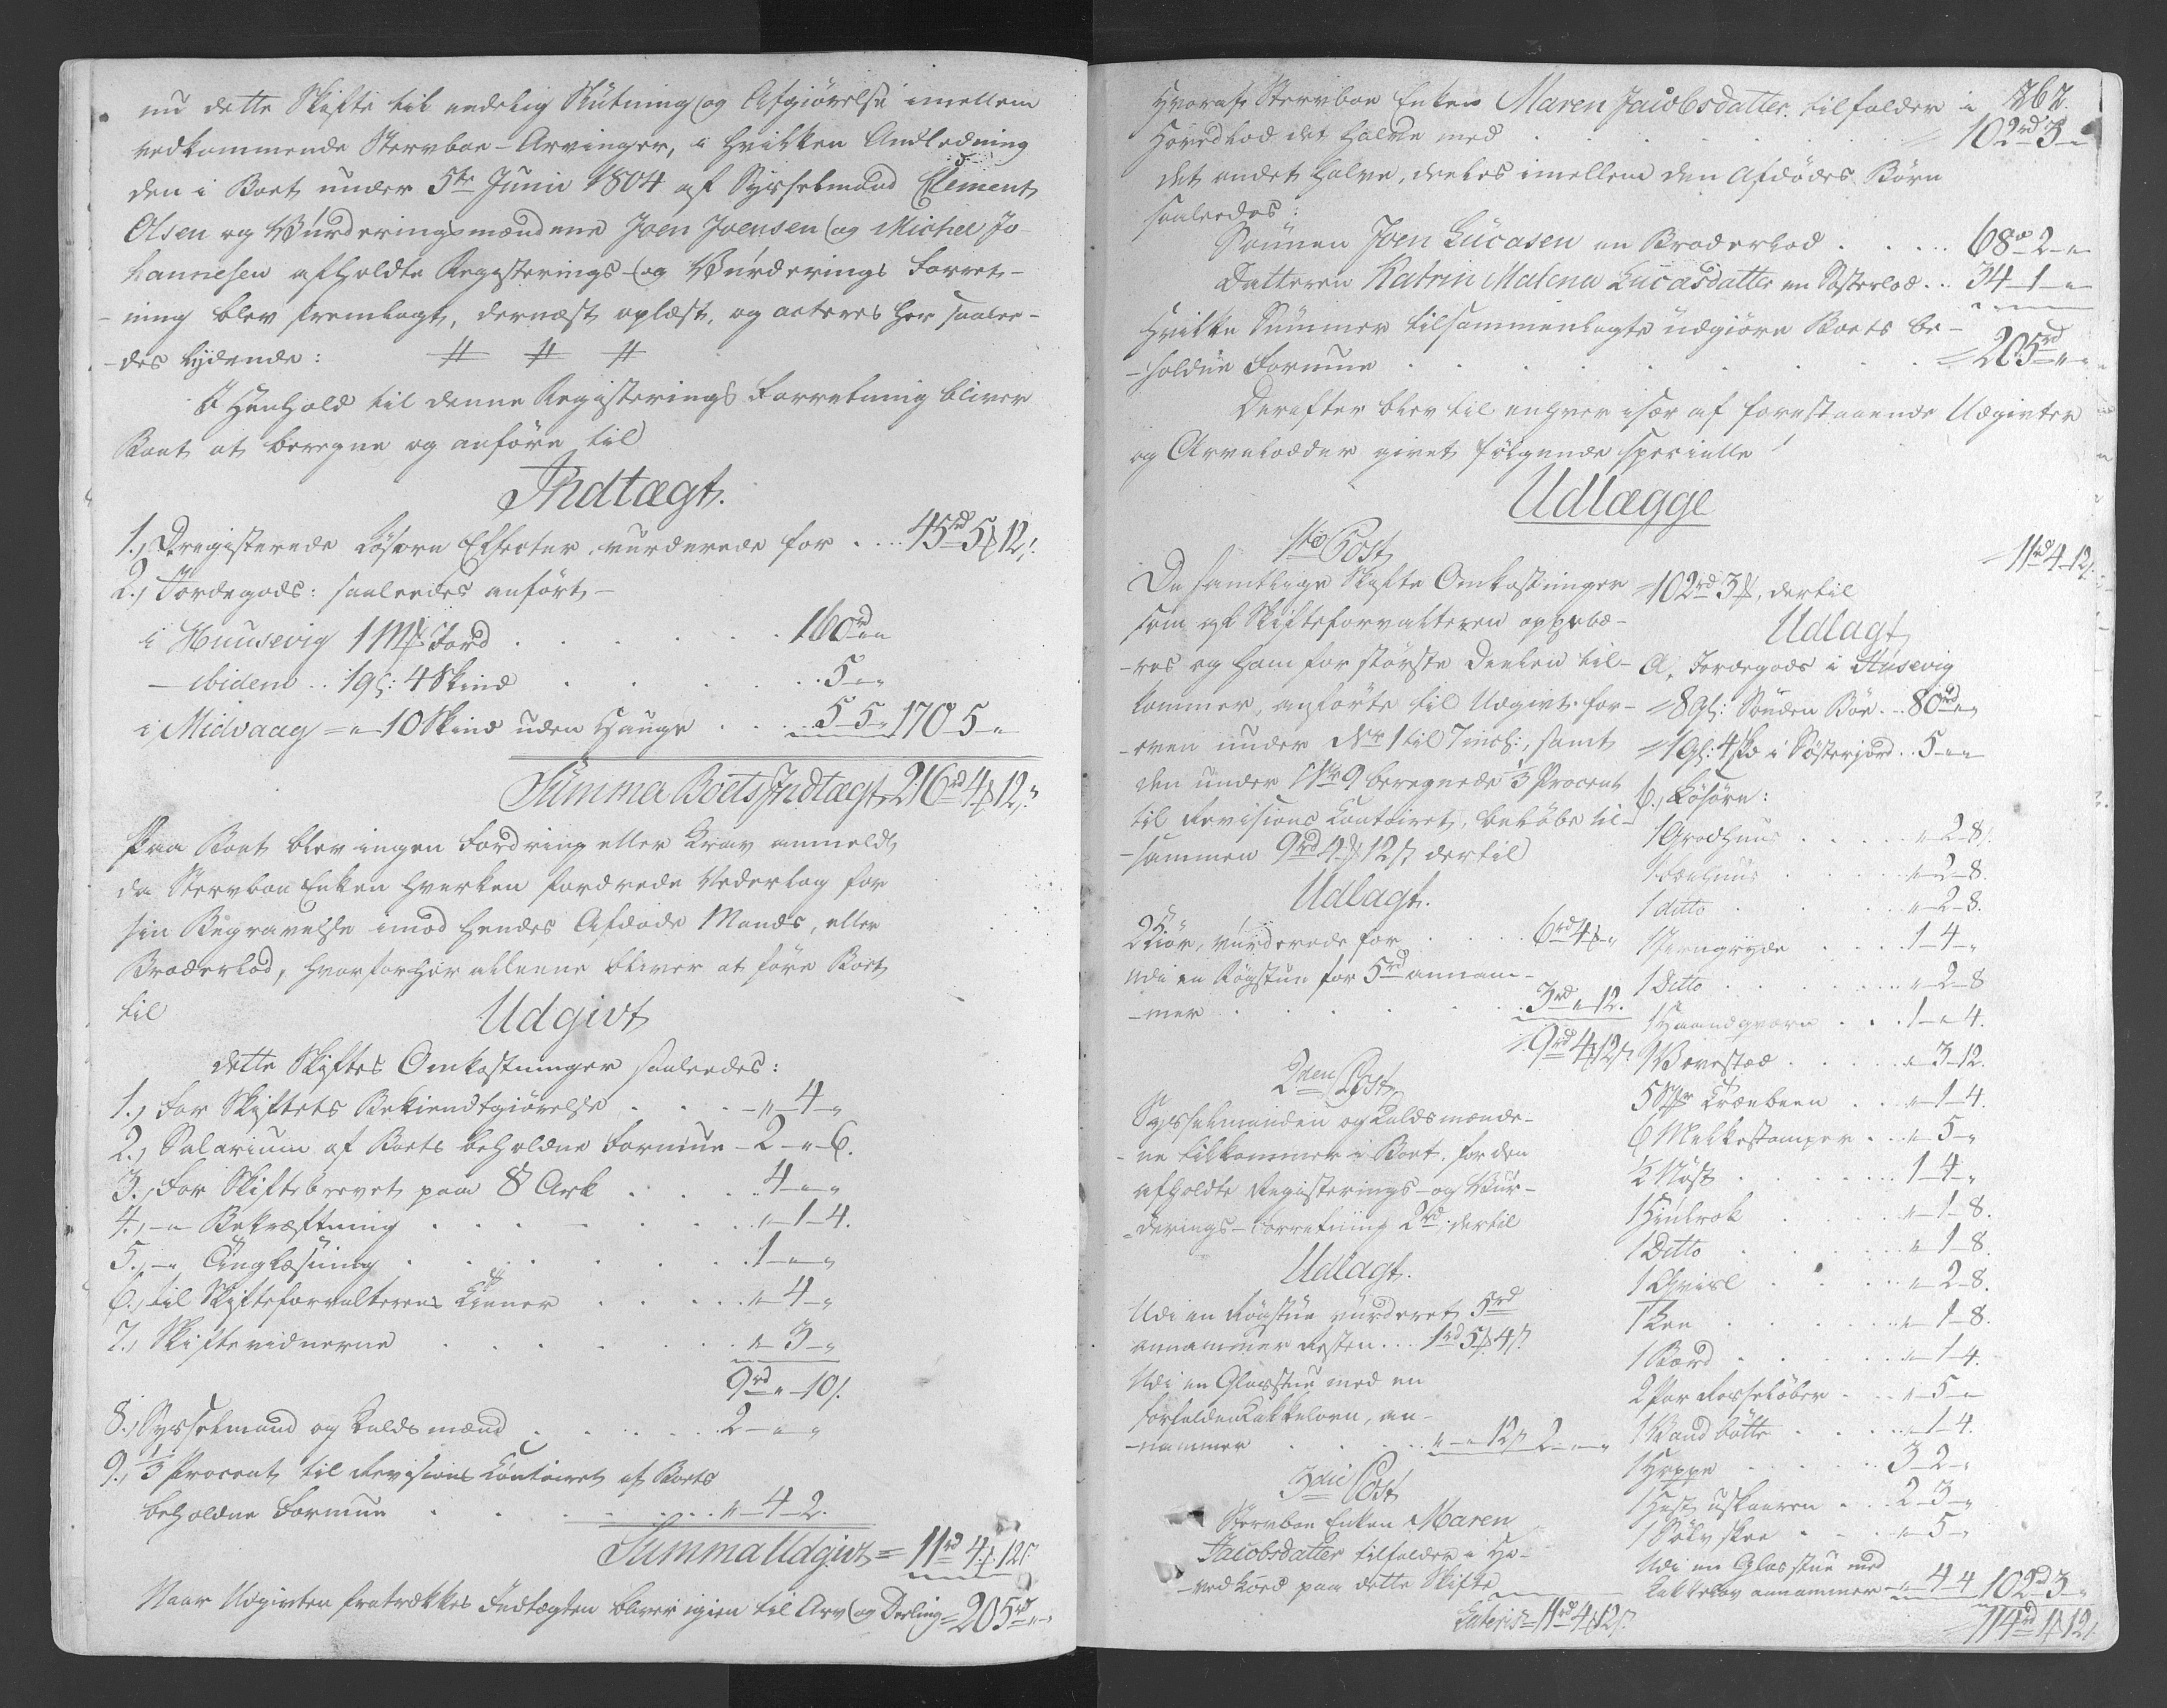 nu dette Skifte til endelig Slutning og Afgiørelse imellem
vedkommende Stervboe-Arvinger, i hvilken Andledning
den i Boet under 5te Junii 1804 af Sysselmand Clement
Olsen og Vurderingsmændene Joen Joensen og Michel Jo-
hannesen afholdte Registerings- og Vurderings Forret-
-ning blev fremlagt, dernæst oplæst, og acteres her saalee-
-des lydende: # # #
I Henhold til denne Registerings Forretning bliver
Boet at beregne og anføre til
Indtægt.
1., Registerede Løsøre Effecter, vurderede for .... 45rd 5ƒ 12s.
2., Jordegods: saaledes anført,-
i Huusevig 1 Mk Jord . . . . . 160rd " "
- ibidem .. 1 gl: 4 Skind . . . . 5 " "
i Midvaag = " - 10 Skind uden Hauge . . . 5 - 5 " 170 - 5 - "
Summa Boets Indtægt 216rd 4ƒ 12s.
Paa Boet blev ingen Fordring eller Krav anmeldt,
da Stervboe Enken hverken fordrede Vederlag for
sin Begravelse imod hendes Afdøde Mands, eller
Broderlod, hvorfor her allene bliver at føre Boet
til
Udgivt
dette Skiftes Omkostninger saaledes:
1., For Skiftets Bekiendtgiørelse . . . - " - 4 - "
2., Salarium af Boets beholdne Formue - 2 - " - 6.
3., For Skiftebrevet paa 8 Ark . . . . 4 - " - "
4., - " Bekræftning . . . . . " - 1 - 4.
5., - " Tinglæsning . . . . . 1 - " - "
6., til Skifteforvalterens Tiener . . . . " - 4 - "
7., Skiftevidnerne . . . . . " - 3 - "
9rd " - 10s.
8., Sysselmand og Kaldsmænd . . . . . 2 - " - "
9., 1/3 Procent til Revisions Contoiret af Boets
beholdne Formue . . . . . " - 4 - 2.
Summa Udgivt = 11rd 4ƒ 12s
Naar Udgivten fratrækkes Indtægten bliver igien til Arv og Deeling = 205rd " - "
262.
Hvoraf Stervboe Enken Maren Jacobsdatter tilfalder i
Hovedlod det halve med . . . . . 102rd 3 - "
det andet halve, deeles imellem den Afdødes Børn
saaledes:
Sønnen Joen Lucasen en Broderlod . . . . 68rd 2 - "
Datteren Katrin Malena Lucasdatter en Søsterlod .. 34 - 1 - "
Hvilke Summer tilsammenlagte udgiøre Boets be-
-holdne Formue . . . . . 205rd " - "
Derefter blev til enhver især af forestaaende Udgivter
og Arvelodder giort følgende specielle
Udlægge
1te Post
De samtlige Skifte Omkostninger
som af Skifteforvalteren oppebæ-
-res og ham for største Deelen til-
kommer, anførte til Udgivt for-
-oven under No 1 til 7 incl:, samt
den under No 9 beregnede 1/3 Procent
til Revisions Contoiret, beløbe til-
-sammen 9rd 4ƒ 12s dertil
Udlagt.
2 Kiør, vurderede for . . . . 6rd 4ƒ "
Udi en Røgstue for 5rd annam-
-mer . . . . . 3rd " 12.
9rd 4ƒ 12s.
2den Post
Sysselmanden og Kaldsmænde-
-ne tilkommer i Boet, for den
afholdte Registerings- og Vur-
-derings-Forretning 2rd, dertil
Udlagt.
Udi en Røgstue vurderet 5rd
annammer Resten ... 1rd 5ƒ 4s.
Udi en Glasstue med en
forfalden Kakkelovn, an-
-nammer . . . . " - " 12s 2 - " - "
3die Post
Stervboe Enken Maren
Jacobsdatter tilfalder i Ho-
-vedlod paa dette Skifte
Lateris = 11rd 4ƒ 12s.
11rd 4 - 12s.
102rd 3ƒ, dertil
Udlagt
a, Jordegods i Husevig
8 gl: Sønden Bøe .. 80rd "
1 gl: 4 skd i Søsterjord .. 5 - " - "
b., Løsøre:
1 Grodhuus . . . . " - 2 - 8s.
1 . . . . " - 2 - 8.
1 ditto . . . . " - 2 - 8.
1 Jerngryde . . . . 1 - 4 - "
1 Ditto . . . . " - 2 - 8
1 Haandqværn . . . 1 - " - 4.
1 Vævestoed . . . . " 3 - 12.
5 Træbeen . . . " - 1 - 4.
6 Melkestamper . . . " - 5 - "
1/2 Nøst . . . . 1 - 4 - "
1 . . . . " - 1 - 8.
1 Ditto . . . . " - 1 - 8.
1 . . . . " - 2 - 8.
1 . . . . " - 1 - 8.
1 Bord . . . . " - 1 - 4.
2 Par . . . " - 5 - "
1 Vandbøtte . . . " - 1 - 4.
1 Hoppe . . . . 3 - 2 - "
1 Hest uskaaren . . . 2 - 3 - "
1 Sølv skee . . . " - 5 - "
Udi en Glasstue med
Kakkelov annammer - " - 4 - 4 102rd 3 - "
114rd 1ƒ 12s